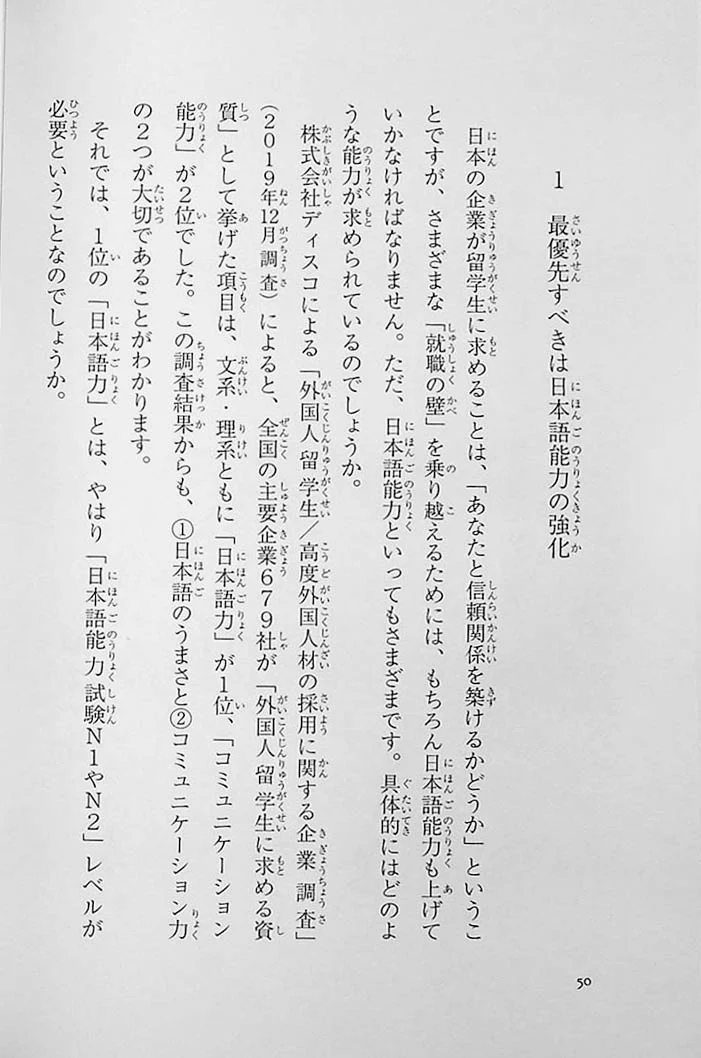 1 最優先すべきは日本語能力の強化
日本の企業が留学生に求めることは、「あなたと信頼関係を築けるかどうか」というこ
とですが、さまざまな「就職の壁」を乗り越えるためには、もちろん日本語能力も上げて
いかなければなりません。ただ、日本語能力といってもさまざまです。具体的にはどのよ
うな能力が求められているのでしょうか。
株式会社ディスコによる「外国人留学生/高度外国人材の採用に関する企業調査」
(2019年12月調査)によると、全国の主要企業679社が「外国人留学生に求める資
質」として挙げた項目は、文系・理系ともに「日本語力」が1位、「コミュニケーション
能力」が2位でした。この調査結果からも、①日本語のうまさと②コミュニケーション力
の2つが大切であることがわかります。
それでは、1位の「日本語力」とは、やはり「日本語能力試験N1やN2」レベルが
必要ということなのでしょうか。
50